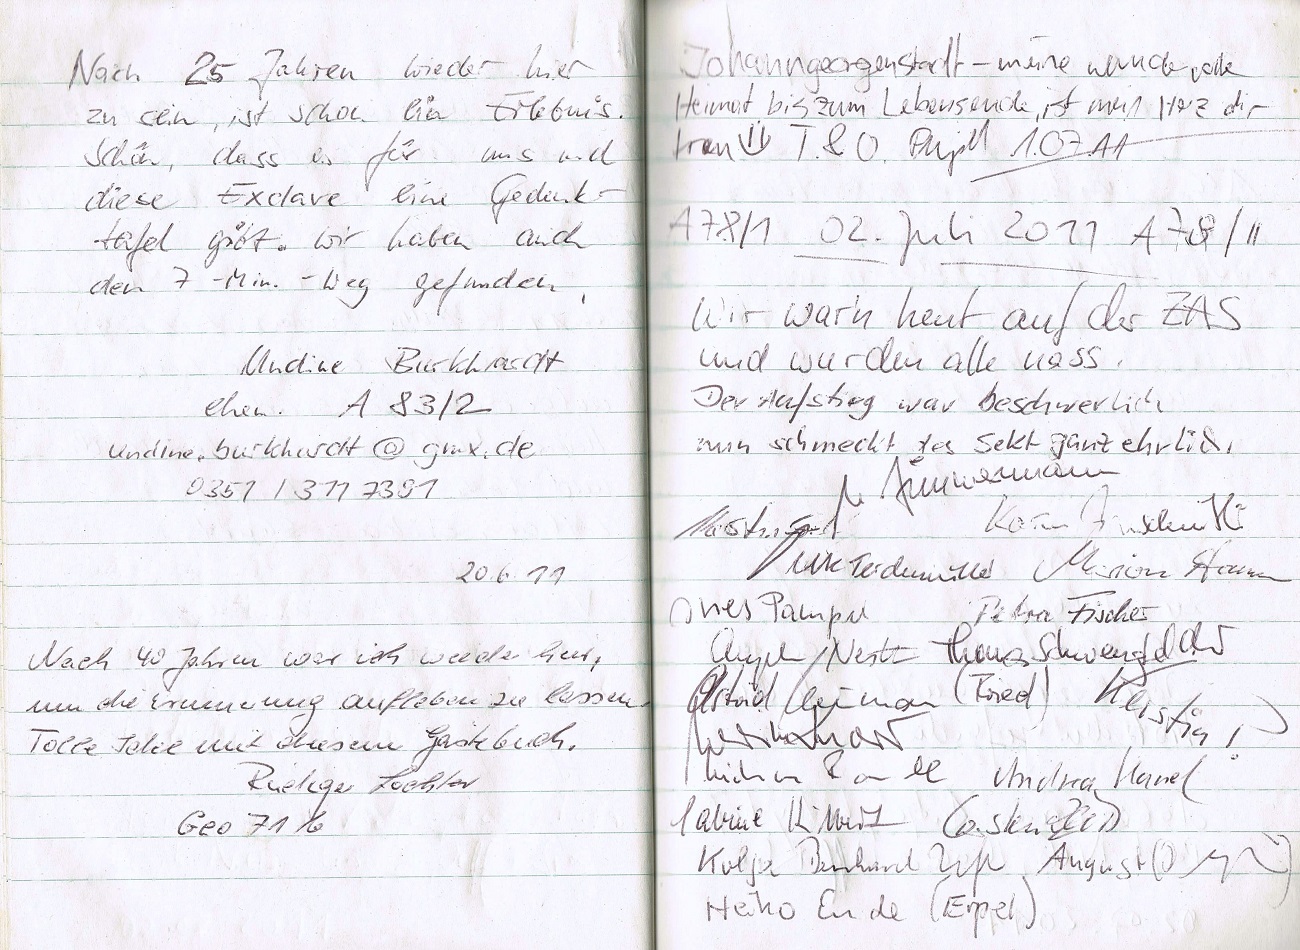 Nach 25 Jahren wieder hier
zu sein, ist schon ein Erlebnis.
Schön, dass es für uns und
diese Exclave eine Gedenk-
tafel gibt. Wir haben auch
den 7-Min.-Weg gefunden.
Undine Burkhardt
ehem. A 83/2
undine.burkhardt@gmx.de
0351 / 311 7381
20.6.11
Nach 40 Jahren war ich wieder hier,
um die Erinnerung aufleben zu lassen.
Tolle Idee mit diesem Gästebuch.
Rüdiger
Geo 71
Johanngeorgenstadt – meine wundervolle
Heimat bis zum Lebensende, ist mein Herz dir
treu T. & O. 1.07.11
A78/1 02. Juli 2011 A78/II
Wir warn heut auf der ZAS
und wurden alle nass.
Der Aufstieg war beschwerlich
nun schmeckt der Sekt ganz ehrlich.
Zimmermann
Karin
Marion
Ines Pampel Petra Fischer
Thomas Schwengfelder
Astrid (Fried) Kerstin
Andrea
Sabine
Kolja Bernhard August
Heiko Ende (Erpel)